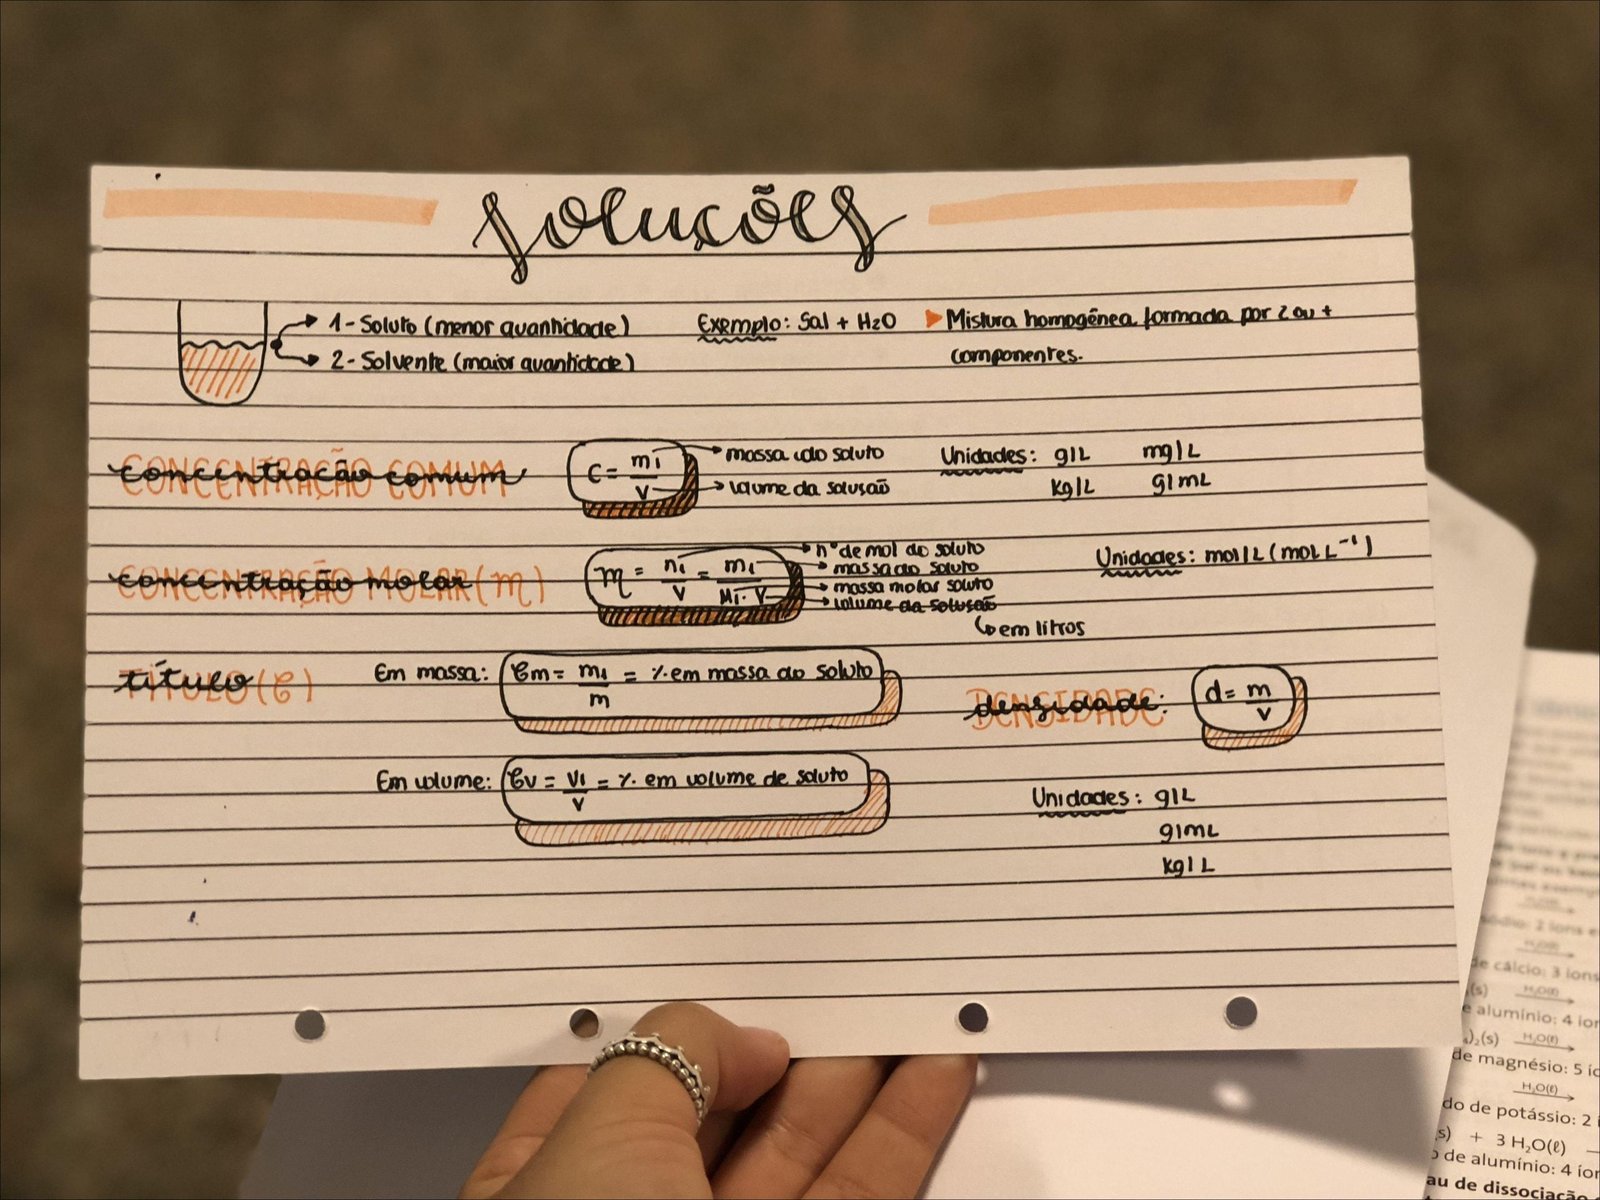 Soluções
1- Soluto (menor quantidade)
2- Solvente (maior quantidade)
Exemplo: Sal + H2O
Mistura homogênea formada por 2 ou +
componentes.
CONCENTRAÇÃO COMUM
concentração comum
C = m1/V
massa do soluto
volume da solusão
Unidades: g/L mg/L
kg/L g/mL
CONCENTRAÇÃO MOLAR (M)
concentração molar
M = n1/V = m1/M1.V
nº de mol do soluto
massa do soluto
massa molar soluto
volume da solusão
em litros
Unidades: mol/L (mol L⁻¹)
TÍTULO (τ)
título
Em massa: τm = m1/m = % em massa do soluto
Em volume: τv = V1/V = % em volume de soluto
DENSIDADE
densidade:
d = m/V
Unidades: g/L
g/mL
kg/L
de cálcio: 3 íons
(s) H₂O(ℓ)
e alumínio: 4 íon
)₂(s) H₂O(ℓ)
de magnésio: 5 íc
H₂O(ℓ)
do de potássio: 2
s) + 3 H₂O(ℓ)
o de alumínio: 4 íor
au de dissociação